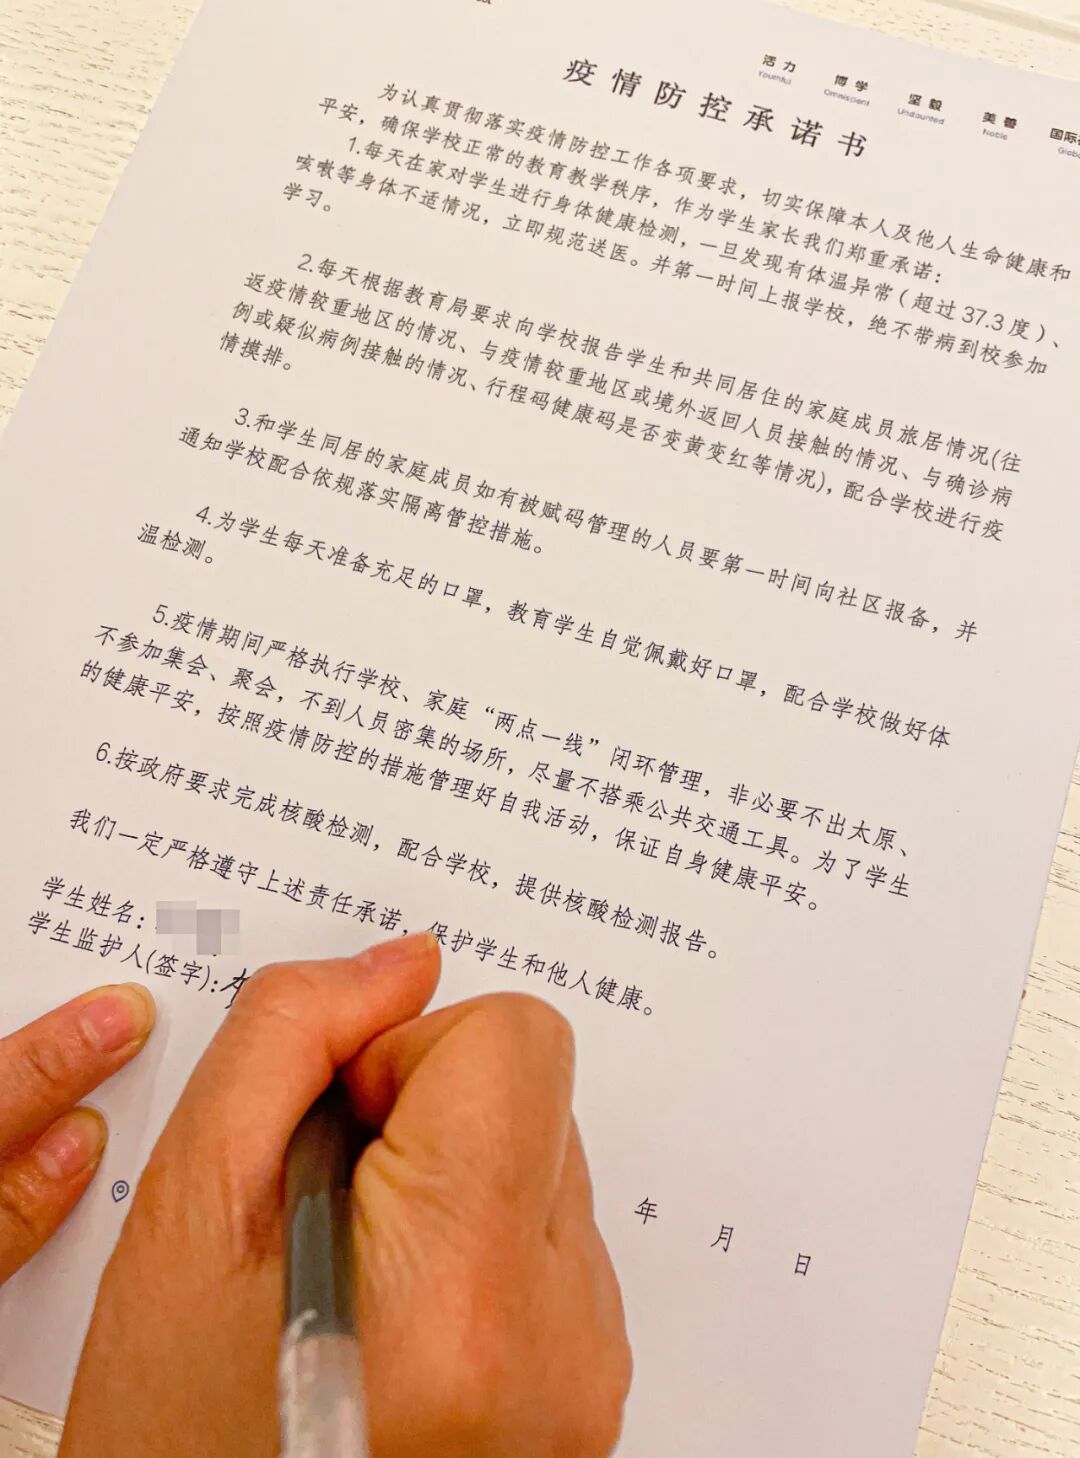 活力 博学 坚毅 美善
Youthful Omniscient Undaunted Noble
疫情防控承诺书
为认真贯彻落实疫情防控工作各项要求，切实保障本人及他人生命健康和
平安，确保学校正常的教育教学秩序，作为学生家长我们郑重承诺：
1.每天在家对学生进行身体健康检测，一旦发现有体温异常（超过37.3度）、
咳嗽等身体不适情况，立即规范送医。并第一时间上报学校，绝不带病到校参加
学习。
2.每天根据教育局要求向学校报告学生和共同居住的家庭成员旅居情况(往
返疫情较重地区的情况、与疫情较重地区或境外返回人员接触的情况、与确诊病
例或疑似病例接触的情况、行程码健康码是否变黄变红等情况)，配合学校进行疫
情摸排。
3.和学生同居的家庭成员如有被赋码管理的人员要第一时间向社区报备，并
通知学校配合依规落实隔离管控措施。
4.为学生每天准备充足的口罩，教育学生自觉佩戴好口罩，配合学校做好体
温检测。
5.疫情期间严格执行学校、家庭“两点一线”闭环管理，非必要不出太原、
不参加集会、聚会，不到人员密集的场所，尽量不搭乘公共交通工具。为了学生
的健康平安，按照疫情防控的措施管理好自我活动，保证自身健康平安。
6.按政府要求完成核酸检测，配合学校，提供核酸检测报告。
我们一定严格遵守上述责任承诺，保护学生和他人健康。
学生姓名：
学生监护人(签字)：
年 月 日